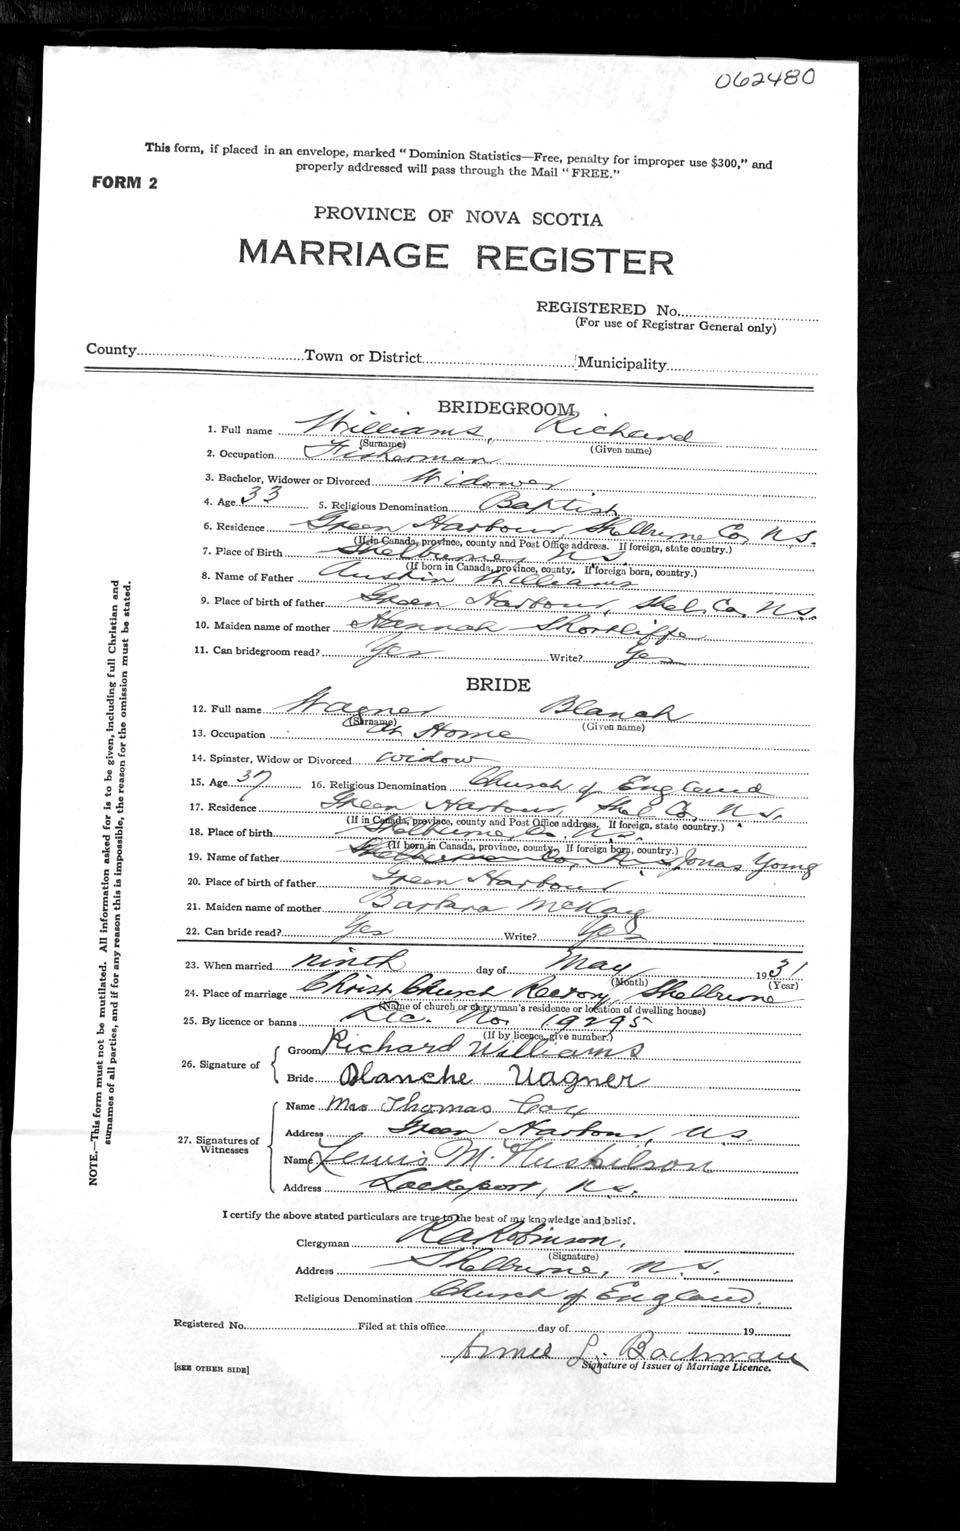 062480
This form, if placed in an envelope, marked "Dominion Statistics—Free, penalty for improper use $300," and
properly addressed will pass through the Mail "FREE."
FORM 2
PROVINCE OF NOVA SCOTIA
MARRIAGE REGISTER
REGISTERED No.
(For use of Registrar General only)
County Town or District Municipality
BRIDEGROOM
1. Full name Williams, Richard
(Surname) (Given name)
2. Occupation Fisherman
3. Bachelor, Widower or Divorced Widower
4. Age 33 5. Religious Denomination Baptist
6. Residence Green Harbour, Shelburne Co, N.S.
(If in Canada, province, county and Post Office address. If foreign, state country.)
7. Place of Birth Shelburne, N.S.
(If born in Canada, province, county. If foreign born, country.)
8. Name of Father Austin Williams
9. Place of birth of father Green Harbour, Shel. Co. N.S.
10. Maiden name of mother Hannah Shortliffe
11. Can bridegroom read? Yes Write? Yes
BRIDE
12. Full name Wagner Blanch
(Surname) (Given name)
13. Occupation At Home
14. Spinster, Widow or Divorced widow
15. Age 37 16. Religious Denomination Church of England
17. Residence Green Harbour, Shel Co, N.S.
(If in Canada, province, county and Post Office address. If foreign, state country.)
18. Place of birth Shelburne Co., N.S.
(If born in Canada, province, county. If foreign born, country.)
19. Name of father Jonas Young
20. Place of birth of father Green Harbour
21. Maiden name of mother Barbara McKay
22. Can bride read? Yes Write? Yes
23. When married ninth day of May 1931
(Month) (Year)
24. Place of marriage Christ Church Rectory, Shelburne
(Name of church or clergyman's residence or location of dwelling house)
25. By licence or banns Lic. No. 19295
(If by licence, give number.)
26. Signature of
Groom Richard Williams
Bride Blanche Wagner
27. Signatures of Witnesses
Name Mrs Thomas Cox
Address Green Harbour, N.S.
Name Lewis M. Huskilson
Address Lockeport, N.S.
I certify the above stated particulars are true to the best of my knowledge and belief.
Clergyman R A Robinson.
(Signature)
Address Shelburne, N.S.
Religious Denomination Church of England.
Registered No. Filed at this office day of 19
L. Bachman
Signature of Issuer of Marriage Licence.
[SEE OTHER SIDE]
NOTE.—This form must not be mutilated. All Information asked for is to be given, including full Christian and
surnames of all parties, and if for any reason this is impossible, the reason for the omission must be stated.